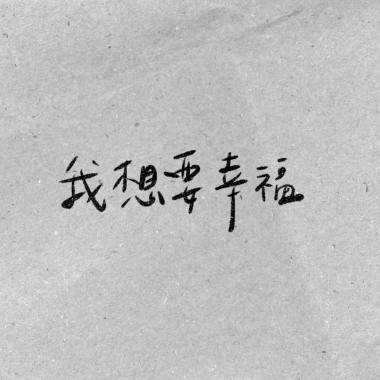 我想要幸福